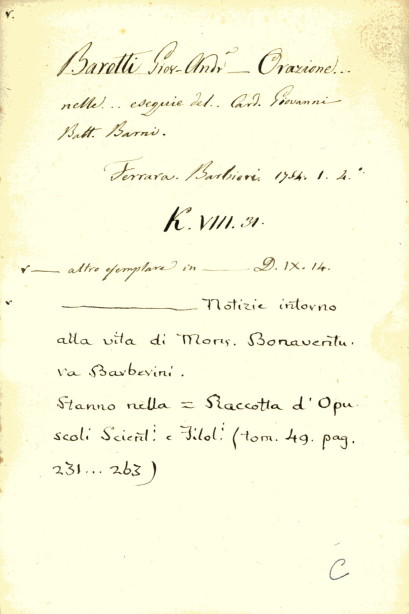 Barotti Giov-Andr.ª — Orazione...
nelle... esequie del.. Card. Giovanni
Batt. Barni.
Ferrara. Barbieri. 1754. 1. 4.º
K. VIII. 31.
v — altro esemplare in — D. IX. 14.
v — Notizie intorno
alla vita di Mons. Bonaventu-
ra Barberini.
Stanno nella = Raccolta d'Opu-
scoli Scient.i e Filol.i (tom. 49. pag.
231... 263)
C